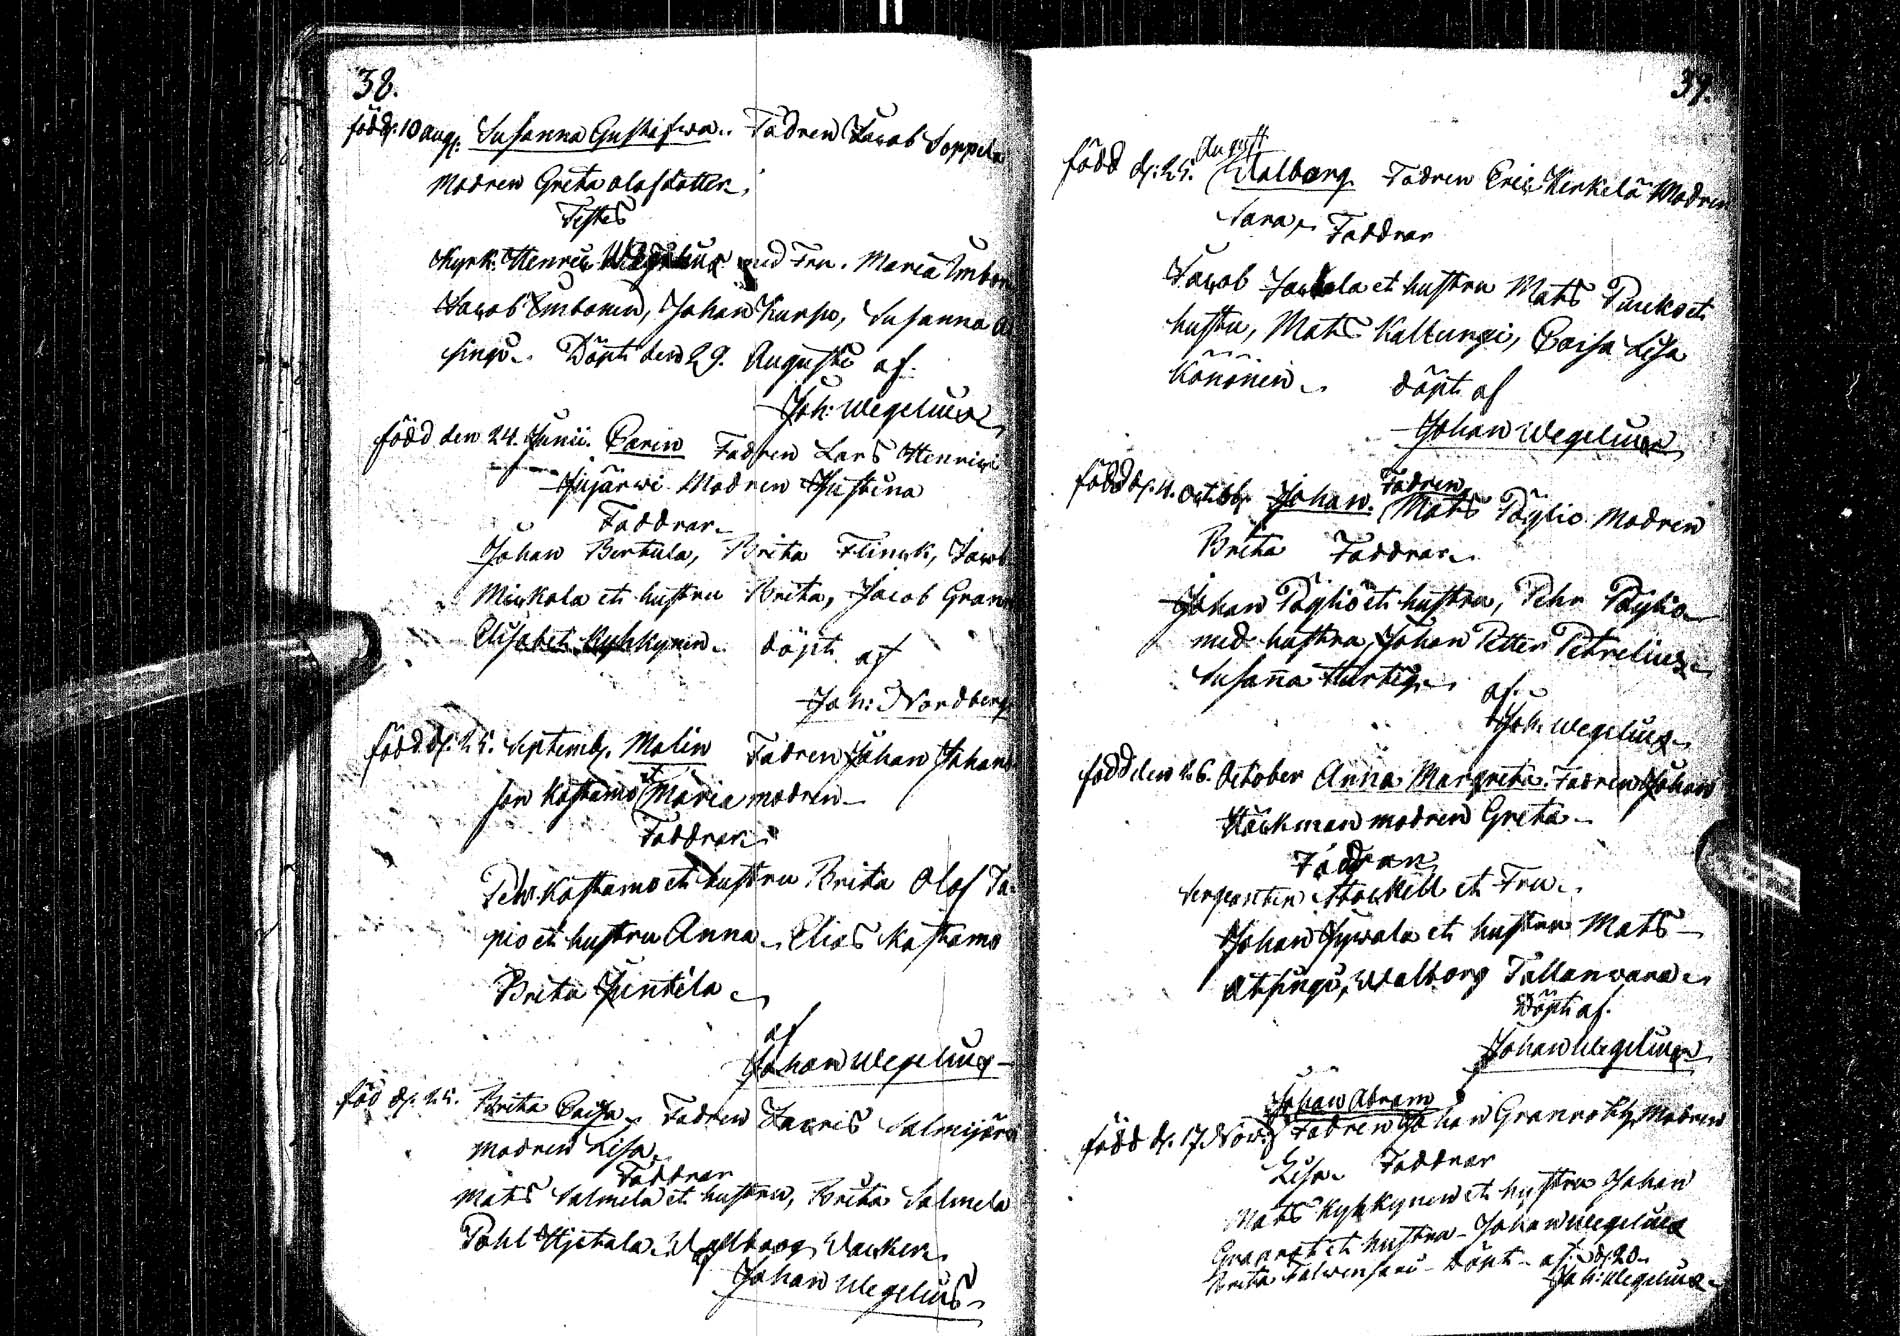 38.
född d. 10 aug. Susanna Gustafwa. Fadren Jacob Soppela
Modren Greta Olofsdotter,
Testes
Kyrkh. Henric Wegelius med Fru. Maria Imbon
Jacob Imbonen, Johan Kurpo, Susanna At
singi. Döpt den 29. Augusti af.
Joh: Wegelius
född den 24. Junii. Carin Fadren Lars Henrici
Jujärwi Modren Justina
Faddrar
Johan Bertula, Brita Flinck, Jacob
Mickola et hustru Brita, Jacob Grann
Elisabet Kyhkynen. döpt af
Joh: Nordberg
född d. 25. Septemb. Malin Fadren Johan Johans
son Kostamo et Maria modren
Faddrar
Pehr Kostamo et hustru Brita Olof Ta
pio et hustru Anna. Elias Kostamo
Brita Junttila
af
Johan Wegelius
föd d. 25. Brita Caisa, Fadren Lauris Salmijärvi
Modren Lisa,
Faddrar
Mats Salmela et hustru, Brita Salmela
Pohl Hjetala. Walborg
af Johan Wegelius
39.
född d. 25. August Walborg Fadren Eric Kerkelä Modren
Sara, Faddrar
Jacob et hustru Mats et
hustru, Mats Kallungi, Caisa Lisa
Könönen. döpt af
Johan Wegelius
född d. 4. Octobr. Johan. Fadren Mats Pöyliö Modren
Brita Faddrar
Johan Pöyliö et hustru, Pehr Pöyliö
med hustru, Johan Petter Petrelius
Susanna Hurtig
af.
Joh. Wegelius
född den 26. October Anna Margreta. Fadren Johan
Stäckman modren Greta
Faddrar
Sergeanten Stockell et Fru.
Johan Jywala et hustru Mats
Atsingi, Walborg Tallanvara
Döpt af.
Johan Wegelius
Johan Abram
född d. 17. Nov. Fadren Johan Granroth, Modren
Lisa. Faddrar
Mats Kyhkynen et hustru Johan
Granrot et hustru. Johan Wegelius
Brita Talvensari. Döpt af. d. 20.
Joh: Wegelius